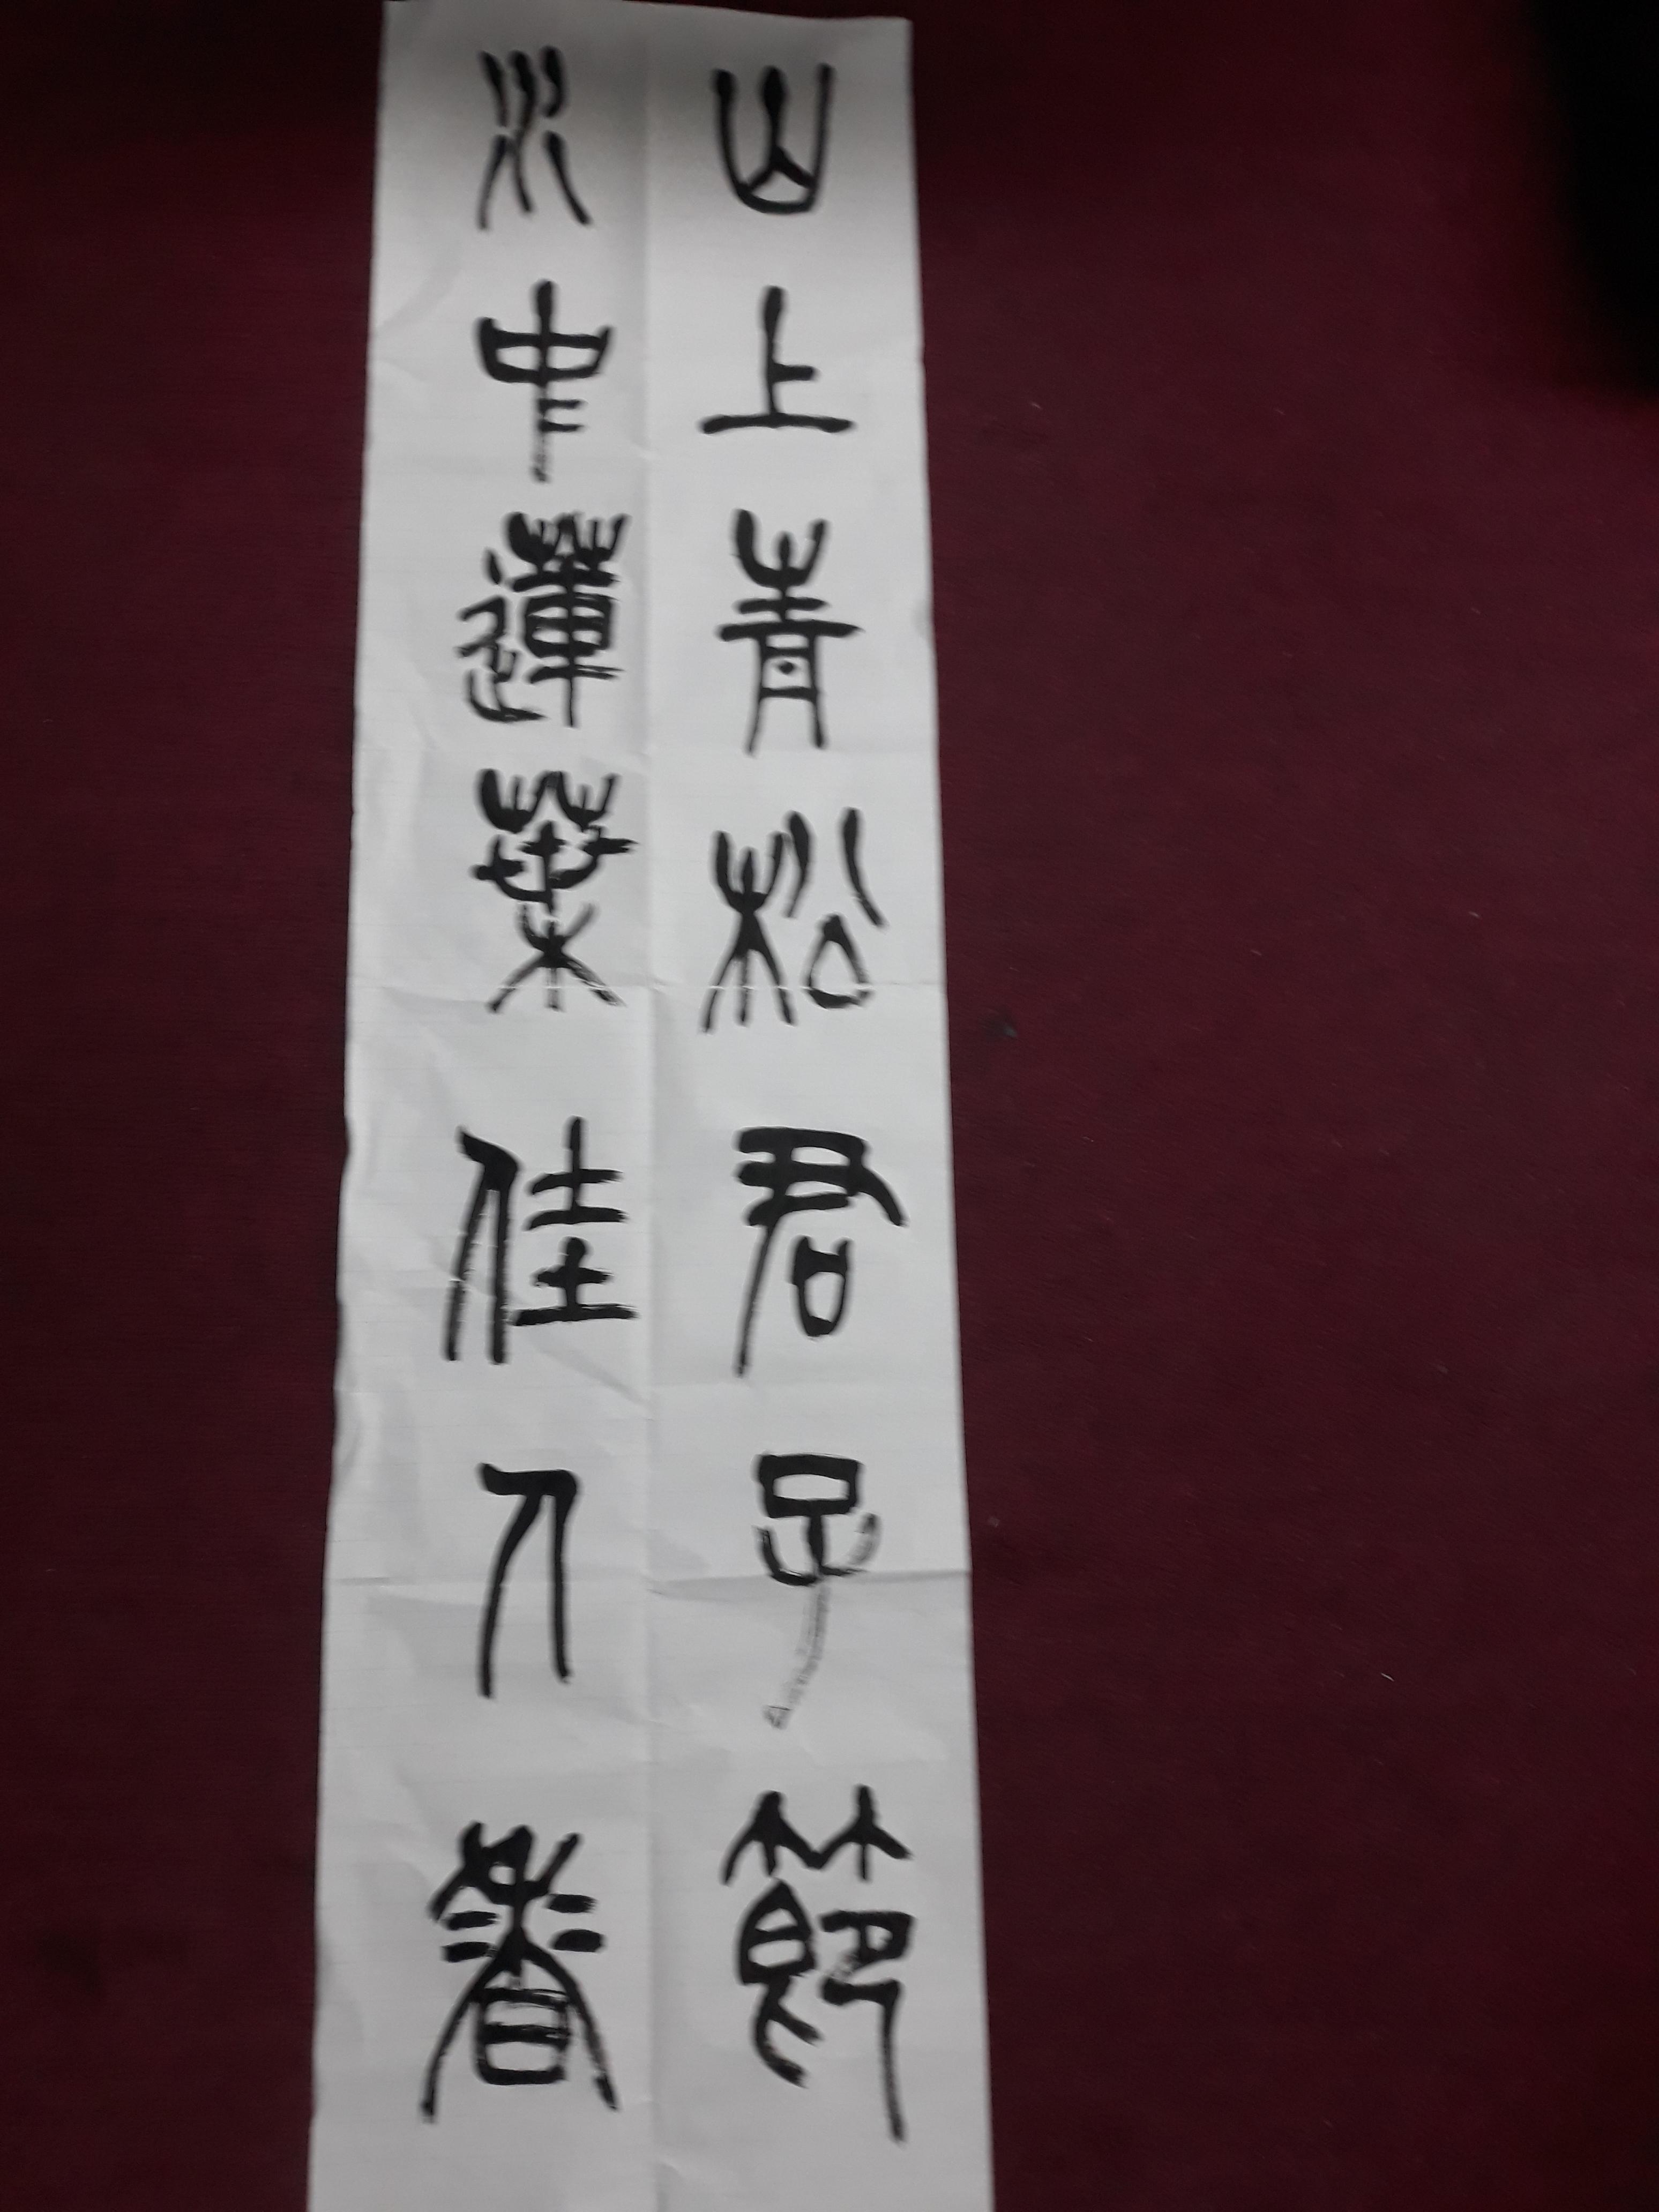 山上青松君子節
水中蓮葉佳人香